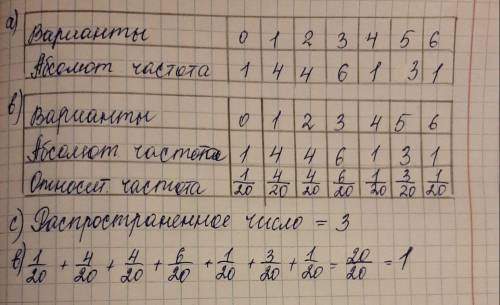 а) Варианты 0 1 2 3 4 5 6
Абсолют частота 1 4 4 6 1 3 1
в) Варианты 0 1 2 3 4 5 6
Абсолют частота 1 4 4 6 1 3 1
Относит. частота 1/20 4/20 4/20 6/20 1/20 3/20 1/20
с) Распространенное число = 3
в) 1/20 + 4/20 + 4/20 + 6/20 + 1/20 + 3/20 + 1/20 = 20/20 = 1